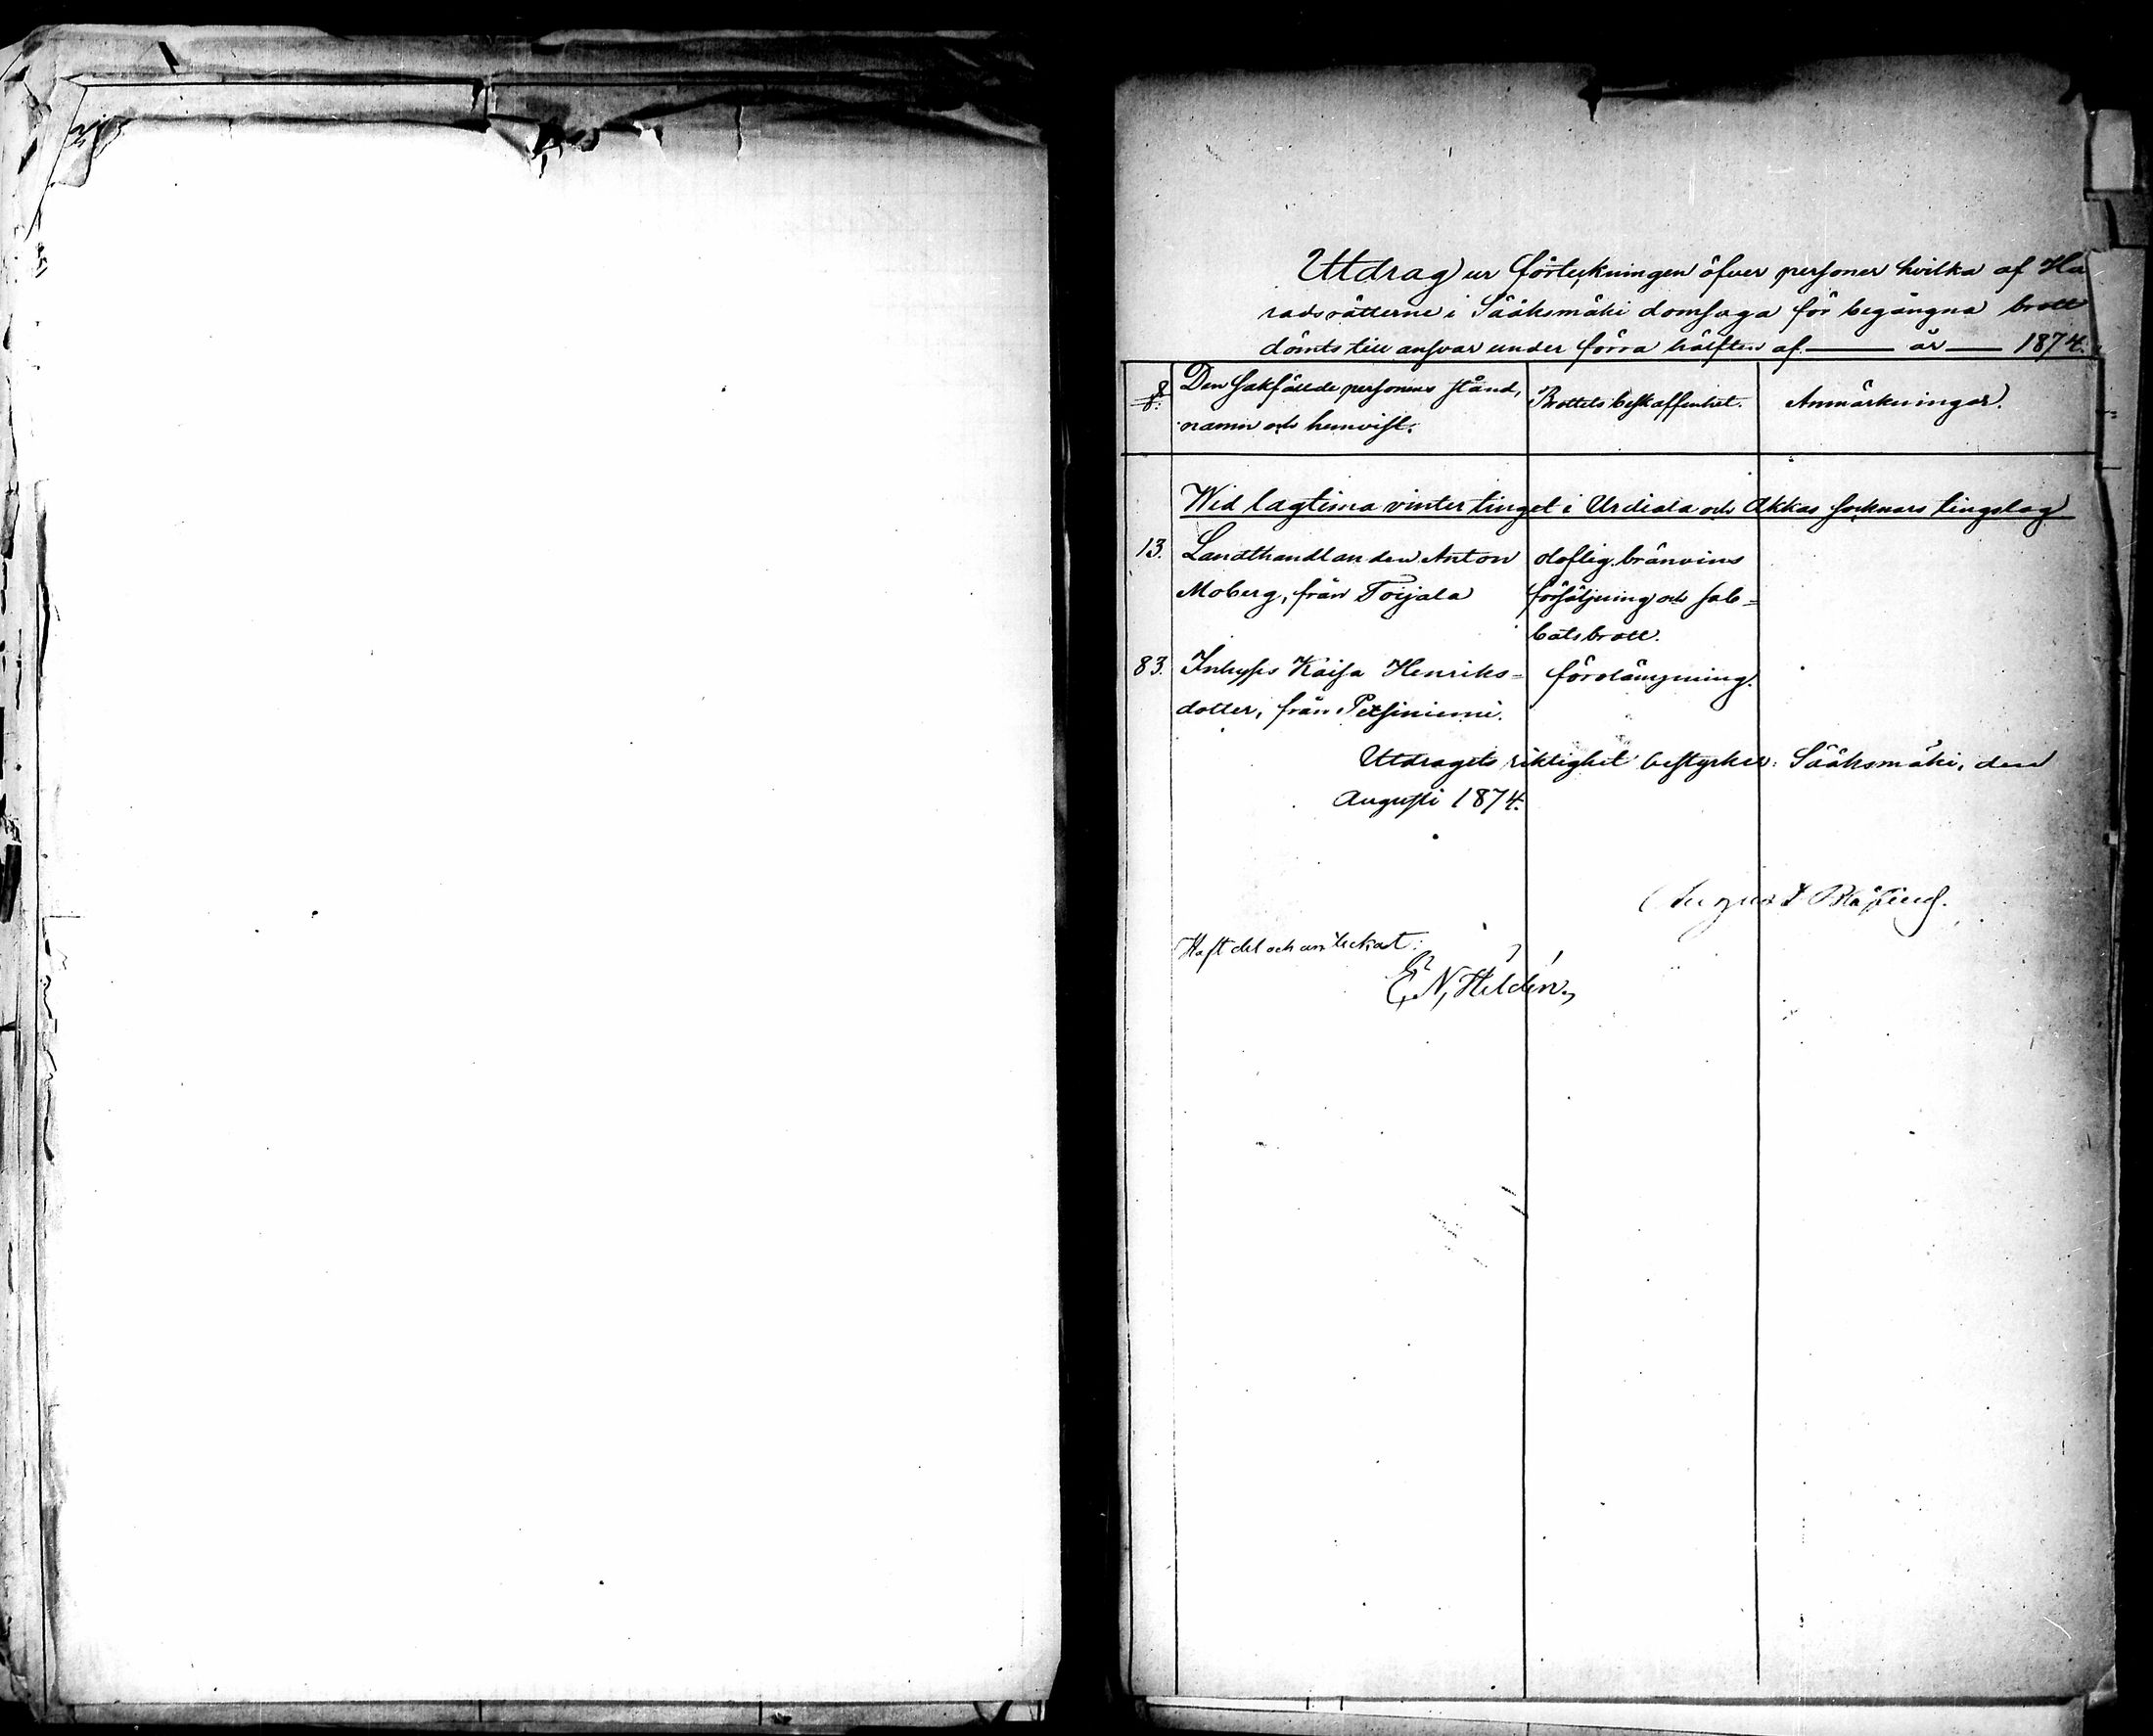 Utdrag ur förteckningen öfver personer hvilka af Hä
radsrätterne i Sääksmäki domsaga för begångna brott
dömts till ansvar under förra hälften af — år — 1874.
Den sakfällde personens stånd,
namn och hemvist.
Brottets beskaffenhet.
Anmärkningar.
Wid lagtima vintertinget i Urdiala och Akkas socknars tingslag
13. Landthandlanden Anton
Moberg, från Toijala
oloflig bränvins
försäljning och sab=
batsbrott.
83. Inhyses Kaisa Henriks=
dotter, från Petsiniemi.
förolämpning.
Utdragets riktighet bestyrker: Sääksmäki, den
Augusti 1874.
August
Haft del och antecknat:
E. N. Heldén